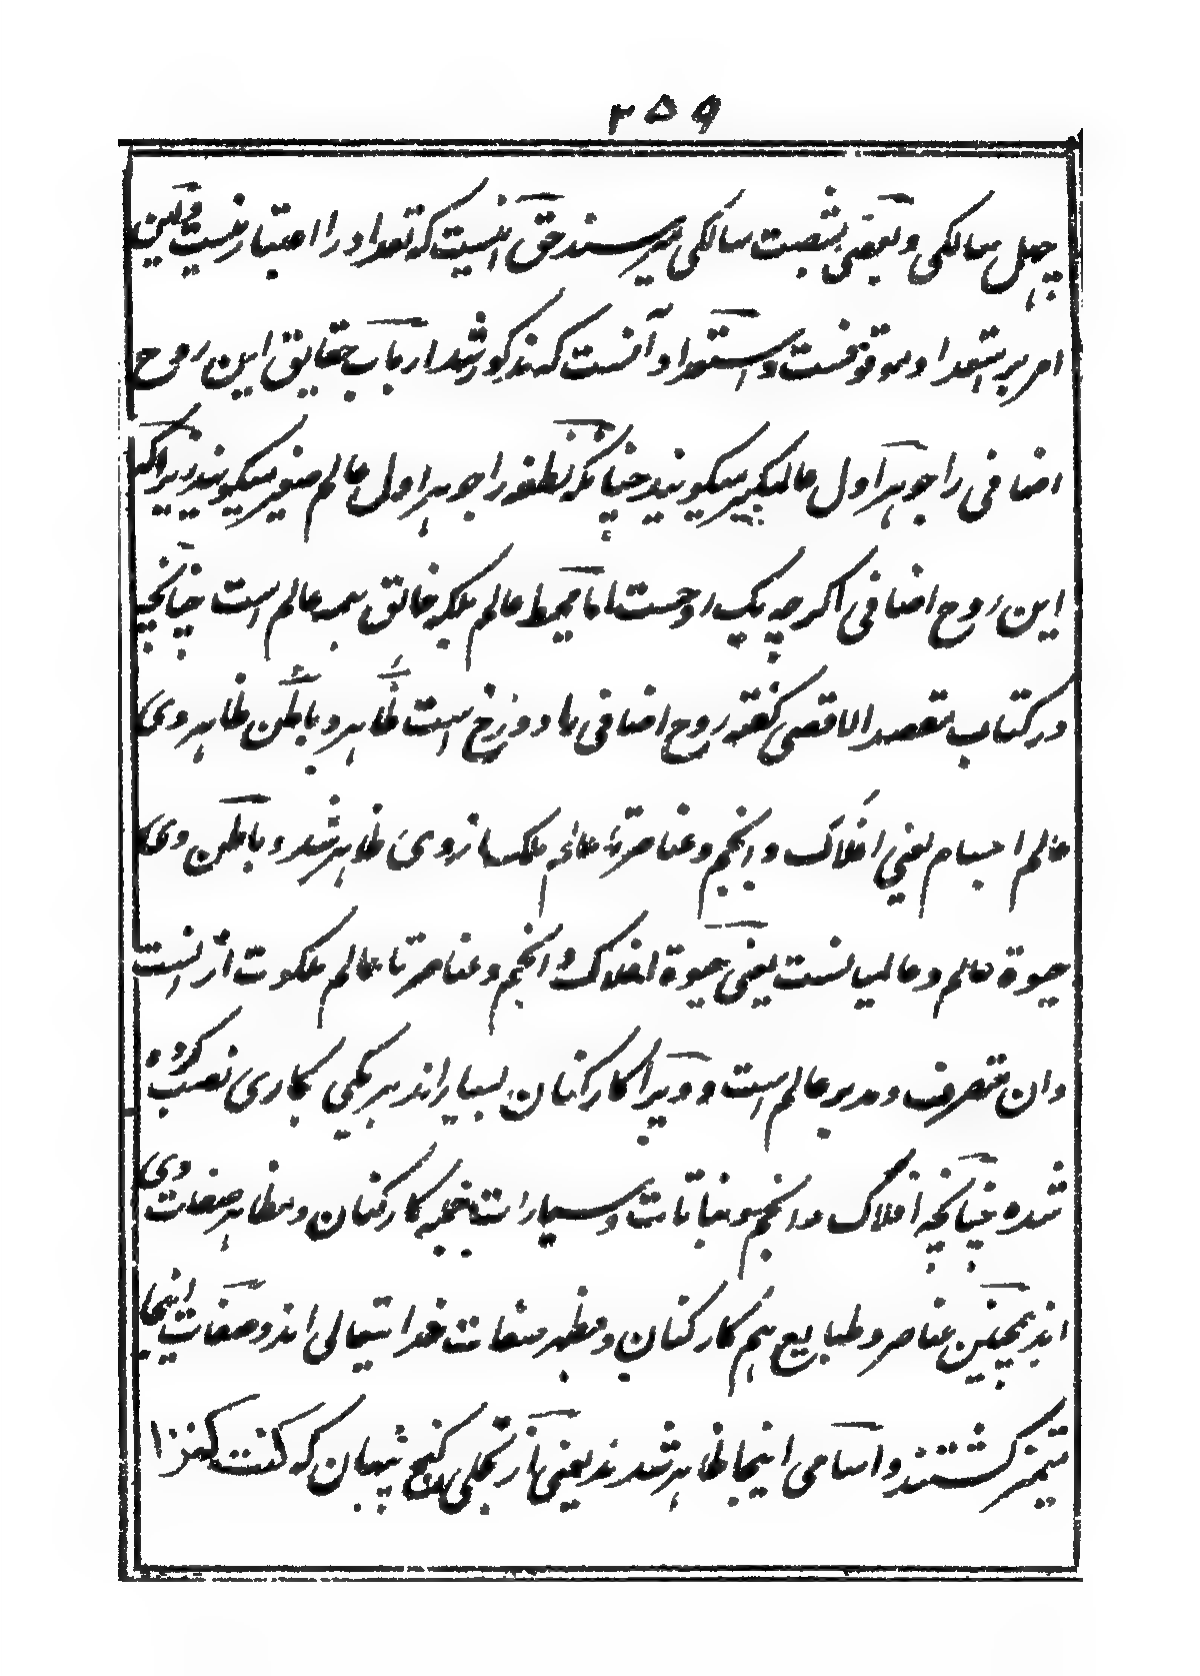 ۲۵۹
چهل سالکی و بعضی بشصت سالکی میرسند حق آنیست که تعداد را اعتبار نیست ولیکن
امر بر استعداد موقوفست و استعداد آنست که مذکور شد ارباب حقایق این روح
اضافی را جوهر اول عالم کبیر میگویند چنانکه نطفه را جوهر اول عالم صغیر میگویند زیراکه
این روح اضافی اگرچه یک روحست اما محیط عالم بلکه خالق همه عالم است چنانچه
در کتاب مقصد الاقصی گفته روح اضافی با دو رخ است ظاهر و باطن ظاهر وی
عالم اجسام یعنی افلاک و انجم و عناصر تا عالم ملک از روی ظاهر شد و باطن وی
حیوة عالم و عالمیانست یعنی حیوة افلاک و انجم و عناصر تا عالم ملکوت ازانست
وان متصرف و مدبر عالم است و ویرا کارکنان بسیار اند هر یکی بکاری نصب کرده
شده چنانچه افلاک و انجم و نباتات و سیارات بجمله کارکنان و مظاهر صفات وی
اند همچنین عناصر و طبایع هم کارکنان و مظهر صفات خدا تعالی اند و صفات اینجا
متمیز گشتند و اسامی اینجا ظاهر شدند یعنی از تجلی گنج پنهان که کنت کنزا